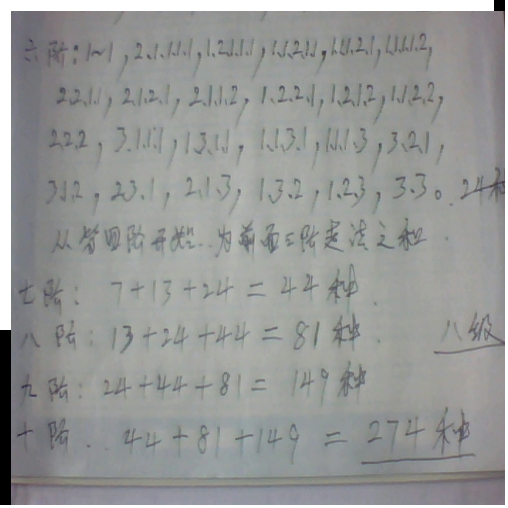 六阶:1~1, 2.1.1.1.1, 1.2.1.1.1, 1.1.2.1.1, 1.1.1.2.1, 1.1.1.1.2,
2.2.1.1, 2.1.2.1, 2.1.1.2, 1.2.2.1, 1.2.1.2, 1.1.2.2,
2.2.2, 3.1.1.1, 1.3.1.1, 1.1.3.1, 1.1.1.3, 3.2.1,
3.1.2, 2.3.1, 2.1.3, 1.3.2, 1.2.3, 3.3。24种
从第四阶开始..为前面三阶走法之和.
七阶: 7+13+24=44种.
八阶: 13+24+44=81种. 八级
九阶: 24+44+81= 149种
十阶.. 44+81+149 = 274种